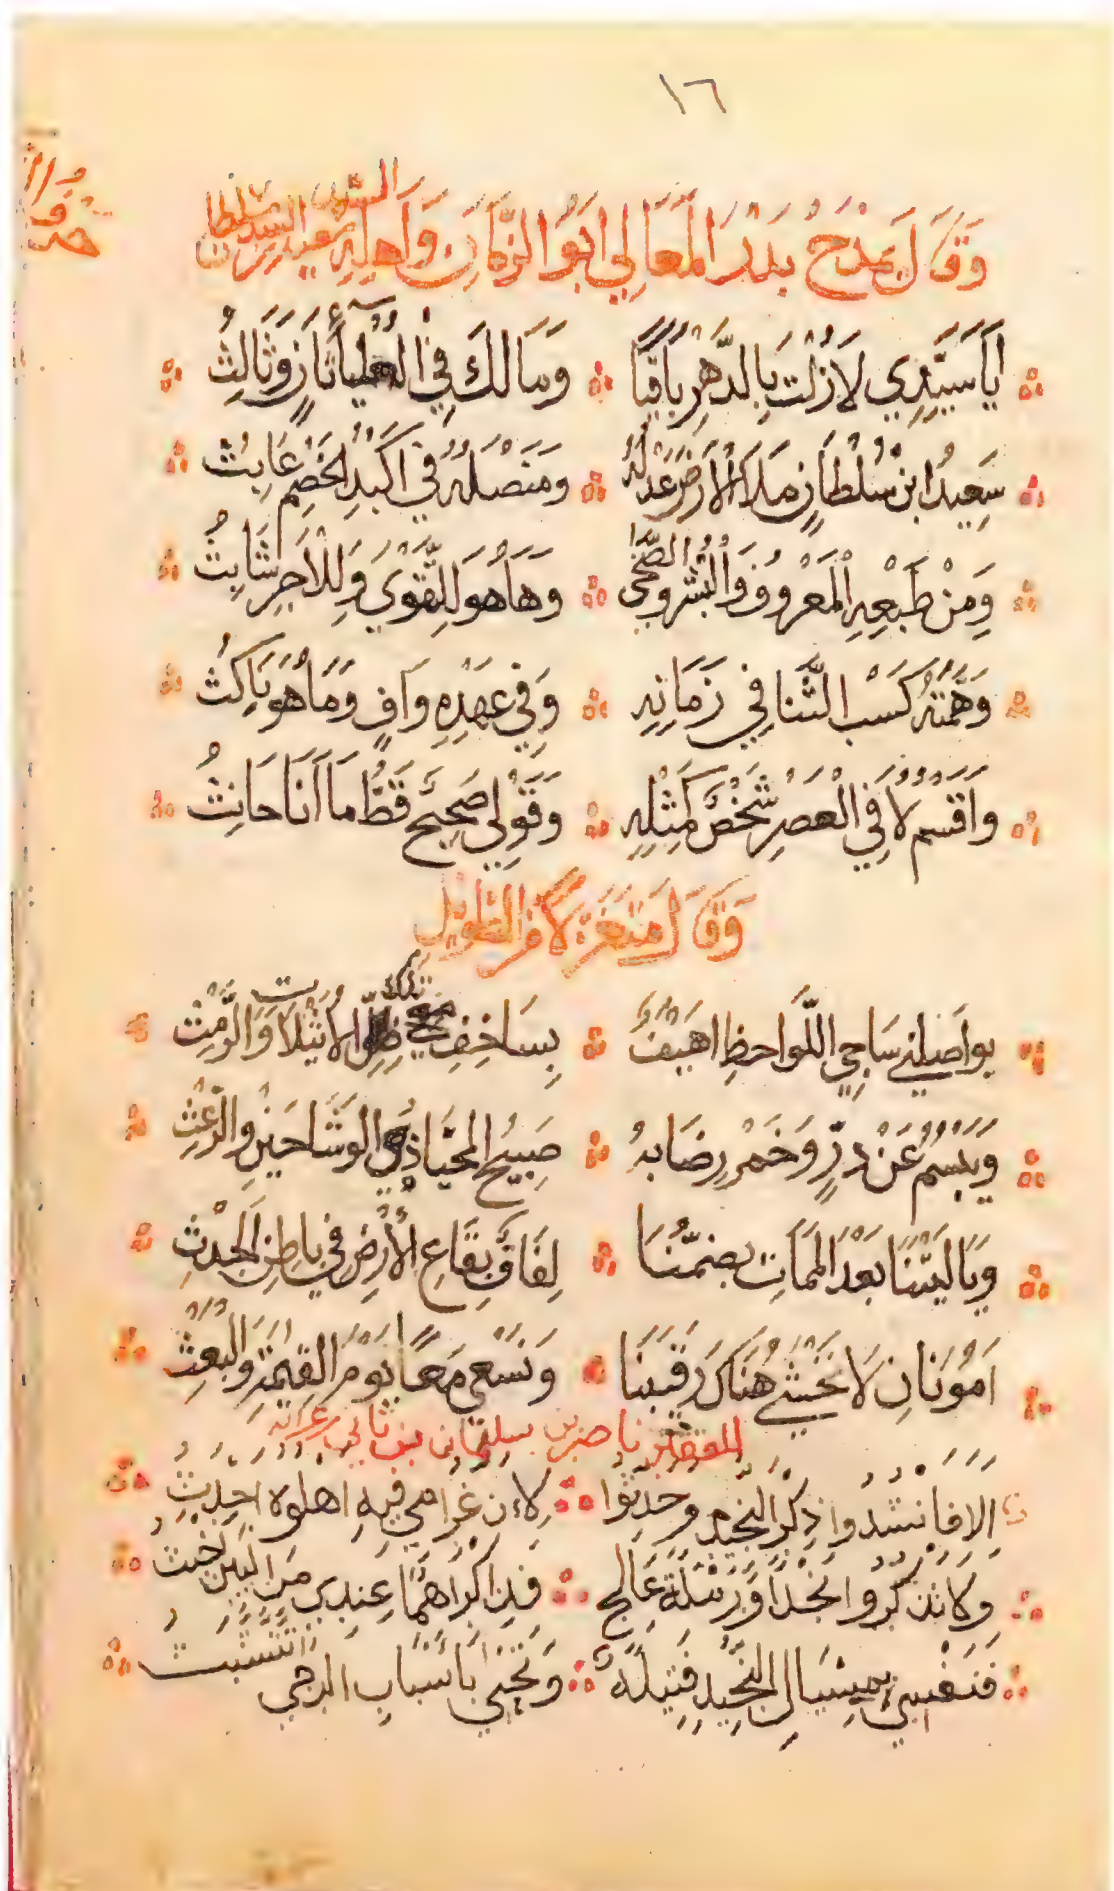 ١٦
وَقَالَ يَمْدَحُ بَدْرَ المَعَالِي ابَوَ الزَّمَانِ وَاَهْلِهِ
اَيَا سَيِّدِي لَا زُلْتَ بِالدَّهْرِ بَاقِيًا وَمَالَكَ فِي العلياء ثَانٍ وَثَالِثُ
سَعِيدُ ابن سُلْطَانٍ مَلَا الْأَرْضَ عَدْلُهُ وَمَنْصَلُهُ فِي اكْبُدِ الخَصْمِ عَابِثُ
وَمِنْ طَبْعِهِ الْمَعْرُوفُ وَالْبُشْرُ وَهَا هُوَ لِلتَّقْوَي وَلِلْاَجِرِ شَابِثُ
وَهِمَّتُهُ كَسْبُ الثَّنَا فِي زَمَانِهِ وَفِي عَهْدِهِ وَافٍ وَمَا هُوَ نَاكِثُ
وَاقْسُمُ لَا فِي الْعَصْرِ شَخْصٌ كَمِثْلِهِ وَقَوْلِي صَحِيحٌ قَطُّ مَا اَنَا حَانِثُ
وَقَالَ مُتَغَزِّلًا مِنَ الطَّوِيلِ
يواصلني سَاجِي اللَّوَاحِظِ اهْيَفُ الْاثْيلَاتِ وَالرَّمْثِ
وَيَبْسُمُ عَنْ دُرٍّ وَخَمْرٍ رِضَابهُ صَبِيحُ المُحَيَّا ذي الوَشَاحَيْنِ وَالرَّعْثِ
وَيَا لَيْتَنَا بَعْدَ المَمَاتِ يَضُمُّنَا بِقَاعِ الْأَرْضِ فِي بَاطِنِ الْجَدْثِ
اَمُوْنَانِ لَا نَخْشَي هُنَاكَ رَقِيبَنَا وَنَسْعَي مَعًا يَوْمَ القِيمَةِ وَالْبَعْثِ
ناصر بن سليمان بن
الا فانشدوا ذِكْرَ النجيد وحدثوا لان غرامي فيه اهلوه احدث
ولا تذكروا نَجْدًا وَرَمْلَةَ عَالِجٍ فذاكراهما عندي من البين اخبث
فَنَفْسِي النجيد قتيلة باسباب الرجي اتشبث